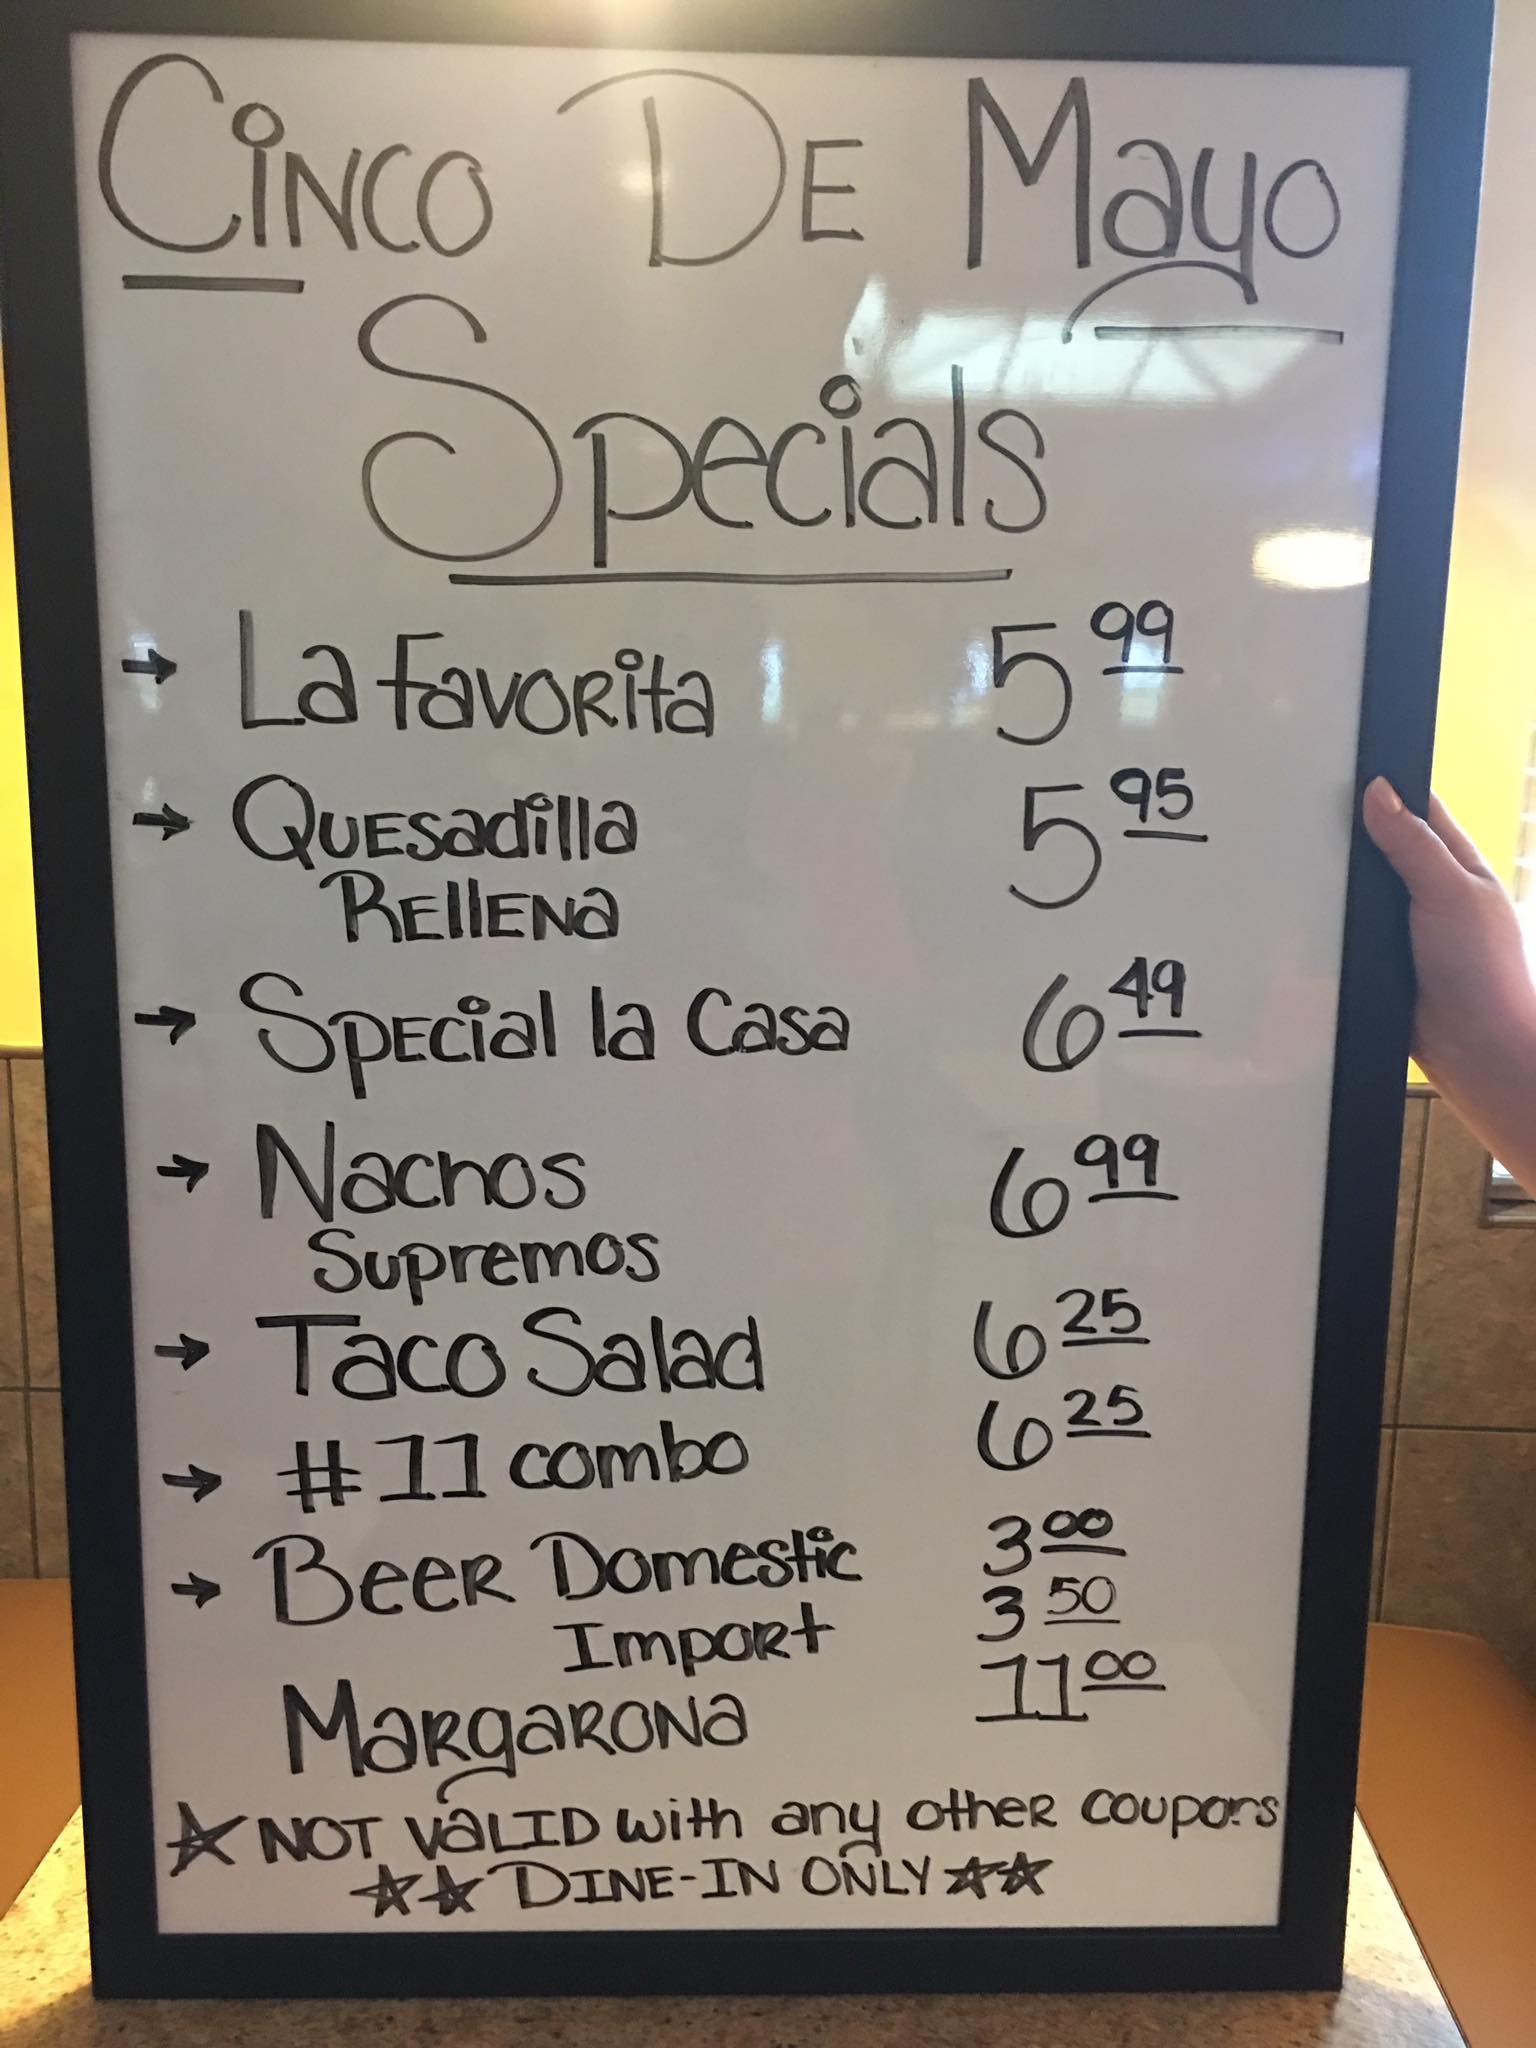 Cinco De Mayo
Specials
→ La Favorita 5 99
→ Quesadilla 5 95
Rellena
→ Special la Casa 6 49
→ Nachos 6 99
Supremos
→ Taco Salad 6 25
→ #11 combo 6 25
→ Beer Domestic 3 00
Import 3 50
Margarona 11 00
☆ NOT VALID with any other coupons
☆☆ DINE-IN ONLY ☆☆